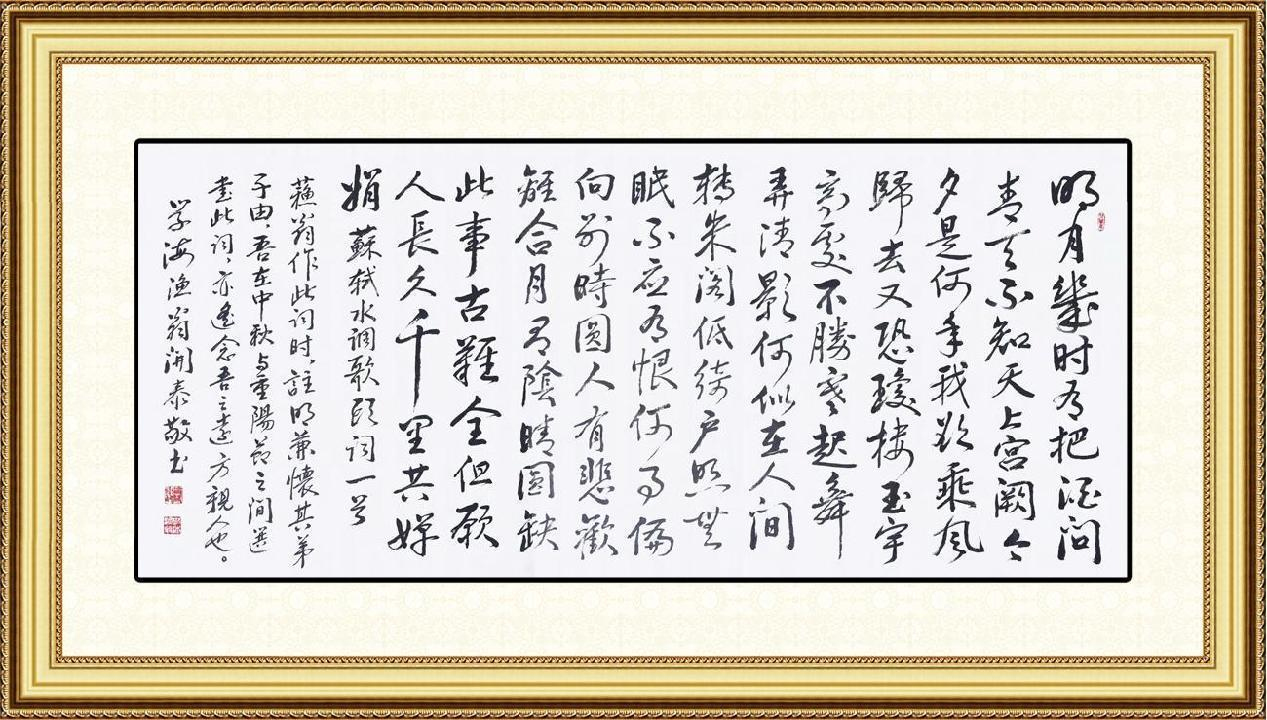 明月幾时有把酒问
青天不知天上宫阙今
夕是何年我欲乘风
歸去又恐瓊楼玉宇
高处不勝寒起舞
弄清影何似在人间
轉朱阁低绮户照無
眠不应有恨何事偏
向别時圆人有悲歡
離合月有陰晴圆缺
此事古難全但願
人長久千里共婵
娟 蘇轼水调歌头词一首
蘇翁作此词时，註明兼懷其弟
子由，吾在中秋与重陽节之间選
书此词，亦遥念吾之遠方親人也。
学海渔翁開泰敬书